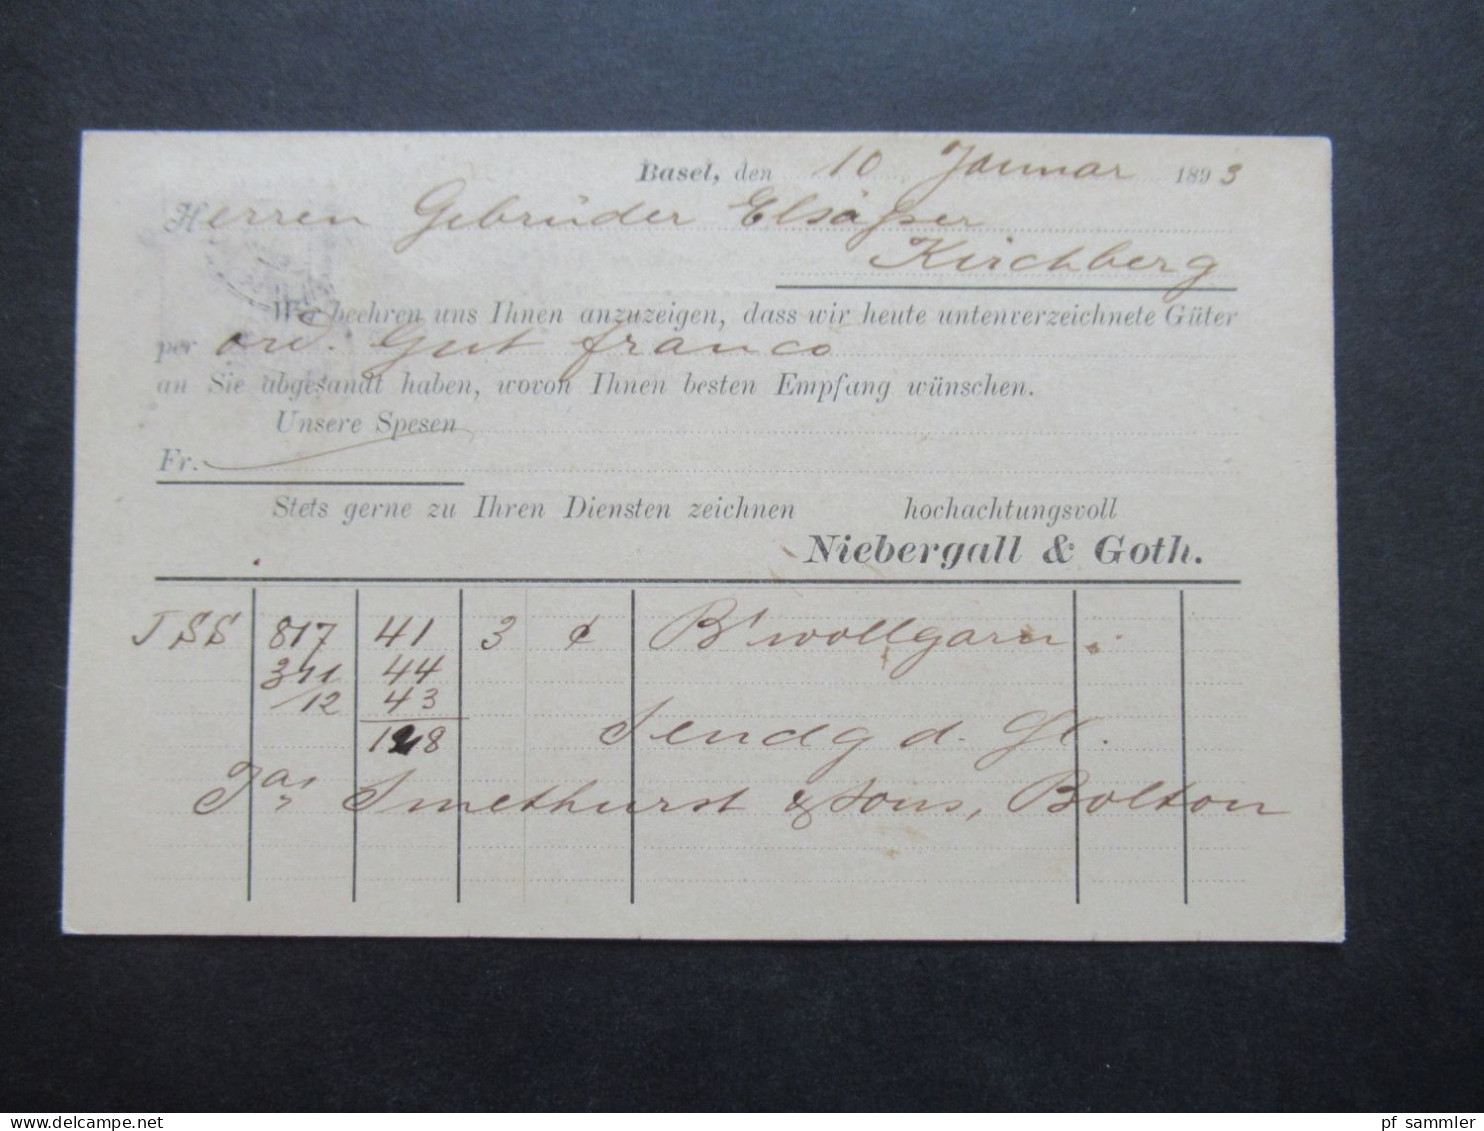 Basel, den 10 Januar 1893
Herren Gebrüder Elsäßer
Kirchberg
Wir beehren uns Ihnen anzuzeigen, dass wir heute untenverzeichnete Güter
per ord. Gut franco
an Sie abgesandt haben, wovon Ihnen besten Empfang wünschen.
Unsere Spesen
Fr.
Stets gerne zu Ihren Diensten zeichnen hochachtungsvoll
Niebergall & Goth.
JSS 817 41 3 B'wollgarn.
44
/12 43
128 Sendg d. H.
Jas Smethurst & Sons, Bolton
pf sammler